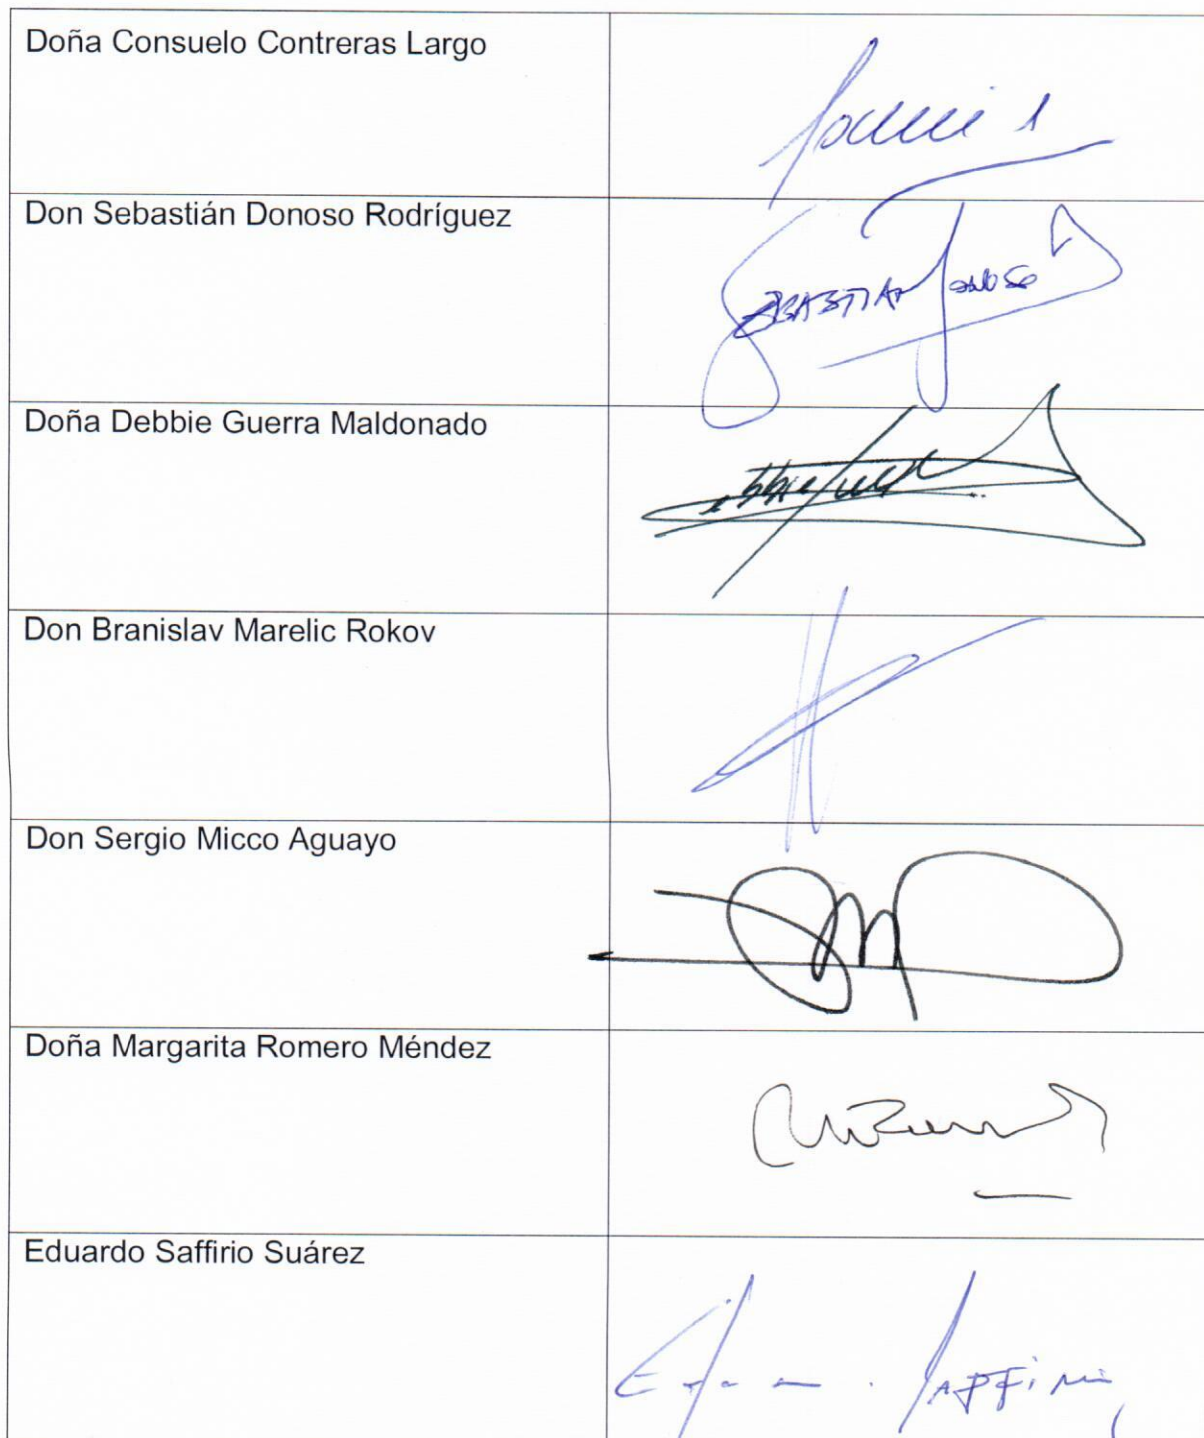 Doña Consuelo Contreras Largo
Don Sebastián Donoso Rodríguez
SEBASTIAN Donoso
Doña Debbie Guerra Maldonado
Don Branislav Marelic Rokov
Don Sergio Micco Aguayo
Doña Margarita Romero Méndez
Eduardo Saffirio Suárez